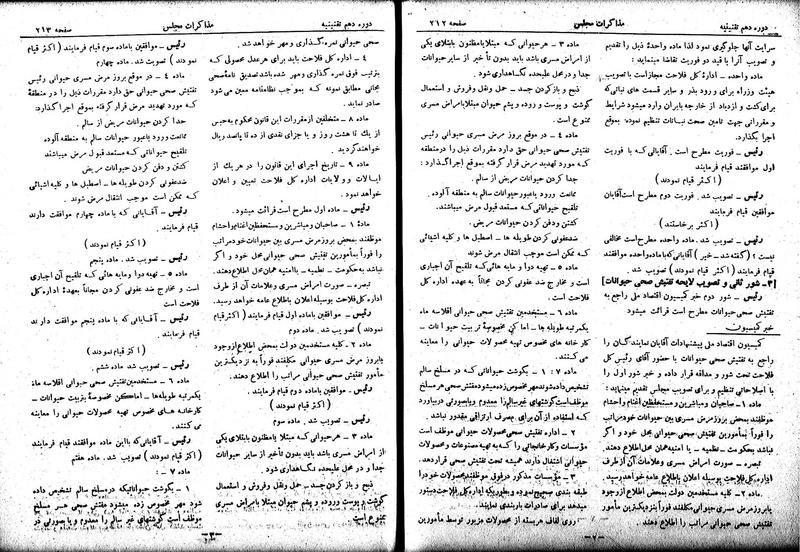 دوره دهم تقنینیه
مذاکرات مجلس
صفحه ۲۱۲
سرایت آنها جلوگیری نمود لذا ماده واحدهٔ ذیل را تقدیم
و تصویب آنرا با قید دو فوریت تقاضا مینماید:
ماده واحده - ادارهٔ کل فلاحت مجاز است با تصویب
هیئت وزراء برای ورود بذر و سایر قسمت های نباتی که
برای کشت و ازدیاد از خارجه بایران وارد میشود شرایط
و مقرراتی جهت تامین صحت نباتات تنظیم نموده بموقع
اجرا بگذارد.
رئیس - فوریت مطرح است. آقایانی که با فوریت
اول موافقند قیام فرمایند
(اکثر قیام نمودند)
رئیس - تصویب شد. فوریت دوم مطرح است آقایان
موافقین قیام فرمایند
(اکثر برخاستند)
رئیس - تصویب شد. ماده واحده مطرح است مخالفی
نیست؟ (گفته شد - خیر) آقایانی که با ماده واحده موافقند
قیام فرمایند (اکثر قیام نمودند) تصویب شد.
[۳- شور ثانی و تصویب لایحه تفتیش صحی حیوانات]
رئیس - شور دوم خبر کمیسیون اقتصاد ملی راجع به
تفتیش صحی حیوانات مطرح است قرائت میشود
خبر کمیسیون
کمیسیون اقتصاد ملی پیشنهادات آقایان نمایندگان را
راجع به تفتیش صحی حیوانات با حضور آقای رئیس کل
فلاحت تحت شور و مداقه قرار داده و خبر شور اول را
با اصلاحاتی تنظیم و برای تصویب مجلس تقدیم مینماید:
ماده ۱- صاحبان و مباشرین و مستحفظین اغنام و احشام
موظفند بمحض بروز مرض مسری بین حیوانات خود مراتب
را فوراً بمأمورین تفتیش صحی حیوانی محل خود و اگر
نباشد بحکومت - نظمیه - یا امنیه همان محل اطلاع دهند.
تبصره - صورت امراض مسری و علامات آن از طرف
اداره کل فلاحت بوسیله اعلان باطلاع عامه خواهد رسید.
ماده ۲ - کلیه مستخدمین دولت بمحض اطلاع از وجود
یا بروز مرض مسری حیوانی مکلفند فوراً بنزدیکترین مأمور
تفتیش صحی حیوانی مراتب را اطلاع دهند
ماده ۳ - هر حیوانی که مبتلا یا مظنون بابتلای یکی
از امراض مسری باشد باید بدون تأخیر از سایر حیوانات
جدا و در محل علیحده نگاهداری شود.
ذبح و باز کردن جسد - حمل و نقل و فروش و استعمال
گوشت و پوست و روده و پشم حیوان مبتلا بامراض مسری
ممنوع است.
ماده ۴ - در موقع بروز مرض مسری حیوانی رئیس
تفتیش صحی حیوانی حق دارد مقررات ذیل را در منطقه
که مورد تهدید مرض قرار گرفته بموقع اجرا گذارد:
جدا کردن حیوانات مریض از سالم.
ممانعت ورود یا عبور حیوانات سالم به منطقه آلوده.
تلقیح حیواناتی که مستعد قبول مرض میباشند.
کشتن و دفن کردن حیوانات مریض.
ضد عفونی کردن طویله ها - اصطبل ها و کلیه اشیائی
که ممکن است موجب انتقال مرض شوند
ماده ۵ - تهیه دوا و مایه هائی که تلقیح آن اجباری
است و مخارج ضد عفونی کردن مجاناً به عهده اداره کل
فلاحت است.
ماده ۶ - مستخدمین تفتیش صحی حیوانی اقلا سه ماه
یکمرتبه طویله ها - اماکن مخصوصهٔ تربیت حیوانات -
کارخانه های مخصوص تهیه محصولات حیوانی را معاینه
می کنند.
ماده ۷: ۱ - بگوشت حیواناتی که در مسلخ سالم
تشخیص داده شوند مهر مخصوص زده میشود مفتش صحی هر مسلخ
موظف است گوشتهای غیر سالم را معدوم و یا بصورتی دربیاورد
که استفاده از آن برای مصرف ارتزاقی مقدور نباشد.
۲ - اداره تفتیش صحی محصولات حیوانی موظف است
مؤسسات و کارخانجاتی را که به تهیه مصنوعات و محصولات
حیوانی اشتغال دارند همیشه تحت تفتیش صحی قرار دهد.
۳ - مؤسسات مذکور در فوق موظفند محصولات خود را
طبقه بندی صحیح نموده و بطوریکه اداره کل فلاحت دستور
میدهد برای صادرات باربندی نمایند.
روی لفاف هر بسته از محصولات مزبور توسط مأمورین
-۲-
دوره دهم تقنینیه
مذاکرات مجلس
صفحه ۲۱۳
صحی حیوانی نمره گذاری و مهر خواهد شد.
۴ - اداره کل فلاحت باید برای هر عدل محصولی که
بترتیب فوق نمره گذاری و مهر شده باشد تصدیق نامهٔ صحی
مجانی مطابق نمونه که بموجب نظامنامه معین می شود
صادر نماید.
ماده ۸ - متخلفین از مقررات این قانون محکوم به حبس
از یک تا هشت روز و یا جزای نقدی از ده تا پانصد ریال
خواهند گردید.
ماده ۹ - تاریخ اجرای این قانون را در هر یک از
ایالات و ولایات اداره کل فلاحت تعیین و اعلان
خواهد نمود.
رئیس - ماده اول مطرح است قرائت میشود.
مادهٔ ۱ - صاحبان و مباشرین و مستحفظین اغنام و احشام
موظفند بمحض بروز مرض مسری بین حیوانات خود مراتب
را فوراً بمأمورین تفتیش صحی حیوانی محل خود و اگر
نباشد به حکومت - نظمیه - یا امنیه همان محل اطلاع دهند.
تبصره - صورت امراض مسری و علامات آن از طرف
اداره کل فلاحت بوسیله اعلان باطلاع عامه خواهد رسید.
رئیس - موافقین با ماده اول قیام فرمایند (اکثر قیام
نمودند) تصویب شد. ماده دوم
ماده ۲ - کلیه مستخدمین دولت بمحض اطلاع از وجود
یا بروز مرض مسری حیوانی مکلفند فوراً به نزدیکترین
مأمور تفتیش صحی حیوانی مراتب را اطلاع دهند.
رئیس - موافقین با ماده دوم قیام فرمایند.
(اکثر قیام نمودند)
رئیس - تصویب شد. ماده سوم
ماده ۳ - هر حیوانی که مبتلا یا مظنون بابتلای یکی
از امراض مسری باشد باید بدون تأخیر از سایر حیوانات
جدا و در محل علیحده نگاهداری شود.
ذبح و باز کردن جسد - حمل و نقل و فروش و استعمال
گوشت و پوست و روده و پشم حیوان مبتلا بامراض مسری
ممنوع است
رئیس - موافقین با ماده سوم قیام فرمایند (اکثر قیام
نمودند) تصویب شد. ماده چهارم
ماده ۴ - در موقع بروز مرض مسری حیوانی رئیس
تفتیش صحی حیوانی حق دارد مقررات ذیل را در منطقهٔ
که مورد تهدید مرض قرار گرفته بموقع اجرا گذارد:
جدا کردن حیوانات مریض از سالم.
ممانعت ورود یا عبور حیوانات سالم به منطقه آلوده
تلقیح حیواناتی که مستعد قبول مرض میباشند
کشتن و دفن کردن حیوانات مریض
ضد عفونی کردن طویله ها - اصطبل ها و کلیه اشیائی
که ممکن است موجب انتقال مرض شوند.
رئیس - آقایانی که با ماده چهارم موافقت دارند
قیام فرمایند.
(اکثر قیام نمودند)
رئیس - تصویب شد. ماده پنجم
ماده ۵ - تهیه دوا و مایه هائی که تلقیح آن اجباری
است و مخارج ضد عفونی کردن مجاناً بعهده اداره کل
فلاحت است
رئیس - آقایانی که با ماده پنجم موافقت دارند
قیام فرمایند.
(اکثر قیام نمودند)
رئیس - تصویب شد ماده ششم
ماده ۶ - مستخدمین تفتیش صحی حیوانی اقلا سه ماه
یکمرتبه طویله ها - اماکن مخصوصهٔ تربیت حیوانات -
کارخانه های مخصوص تهیه محصولات حیوانی را معاینه
می کنند.
رئیس - آقایانی که با این ماده موافقند قیام فرمایند
(اکثر قیام نمودند) تصویب شد. ماده هفتم
ماده ۷ -:
۱ - بگوشت حیواناتیکه در مسلخ سالم تشخیص داده
شود مهر مخصوص زده میشود مفتش صحی هر مسلخ
موظف است گوشتهای غیر سالم را معدوم و یا بصورتی در
-۳-